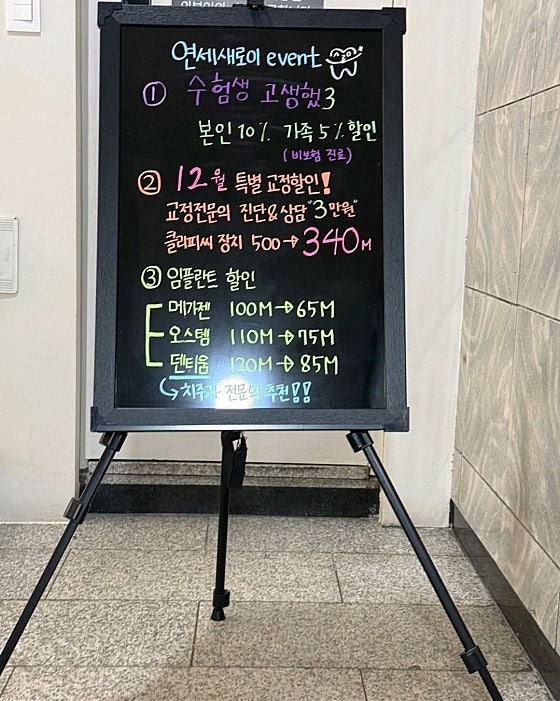 연세새로이 event
① 수험생 고생했3
본인 10% 가족 5% 할인
(비보험 진료)
② 12월 특별 교정할인!
교정전문의 진단&상담 "3만원"
클리피씨 장치 500→340M
③ 임플란트 할인
메가젠 100M→65M
오스템 110M→75M
덴티움 120M→85M
치주과 전문의 추천!!